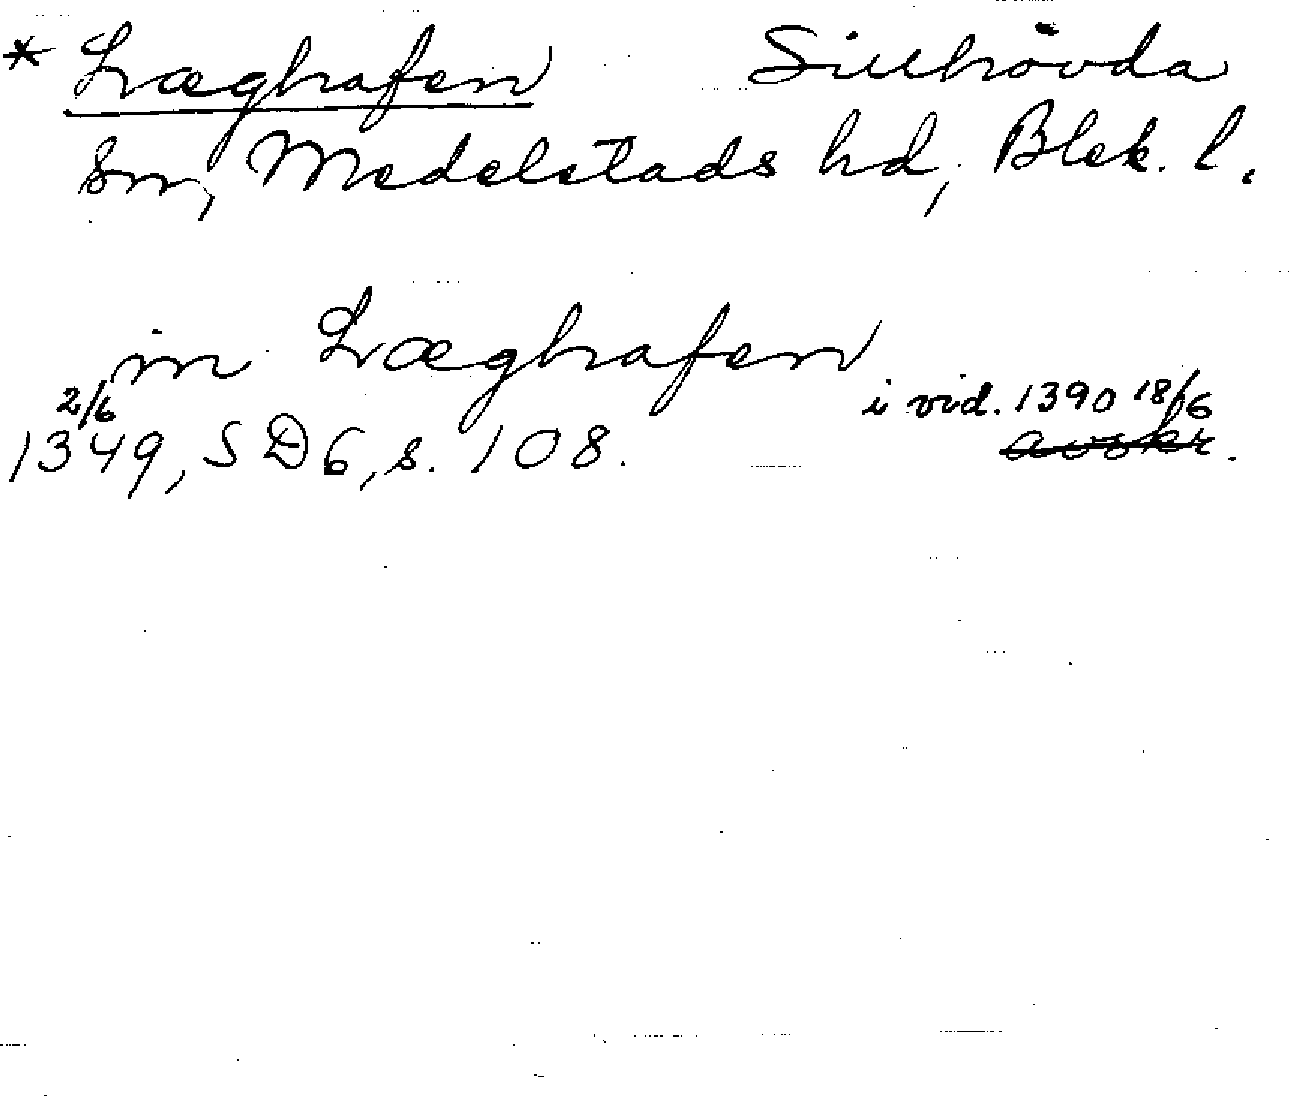 * Læghafen Sillhövda
sn, Medelstads hd, Blek. l.
in Læghafen
2/6 i vid. 1390 18/6
1349, SD 6, s. 108. avskr.